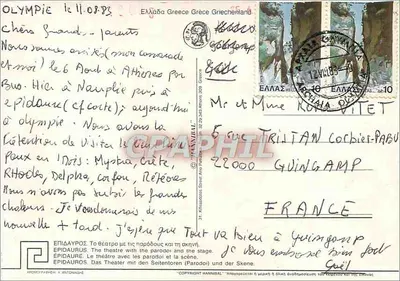 OLYMPIE le 11.08.83
Chers Grands-parents
Nous sommes arrivés (mon camarade
et moi) le 6 Août à Athènes par
Bus. Hier à Nauplie puis à
epidaure (cf carte); aujourd'hui
à olympie. Nous avons la
prétention de visiter le
Paux en 1 mois: Mystra, Crète,
Rhodes, Delphes, Corfou,
Nous n'avons pas subi les grandes
chaleurs. Je vous donnerais de mes
nouvelle + tard. J'espère que Tout va bien à Guingamp
je vous embrasse bien fort
Gaël
Ελλάδα Greece Grèce Griechenland
ΑΡΧΑΙΑ ΟΛΥΜΠΙΑ
ARCHAIA
10
10
Mr et Mme VITET
5 TRISTAN Corbier-PABU
22000 GUINGAMP
FRANCE
"HANNIBAL"
PHIL
ΕΠΙΔΑΥΡΟΣ. Το θέατρο με τις παρόδους και τη σκηνή.
EPIDAURUS. The theatre with the parodoi and the stage.
EPIDAURE. Le théâtre avec les parodoi et la scène.
EPIDAURUS. Das Theater mit den Seitentoren (Parodoi) und der Skene.
"COPYRIGHT HANNIBAL"